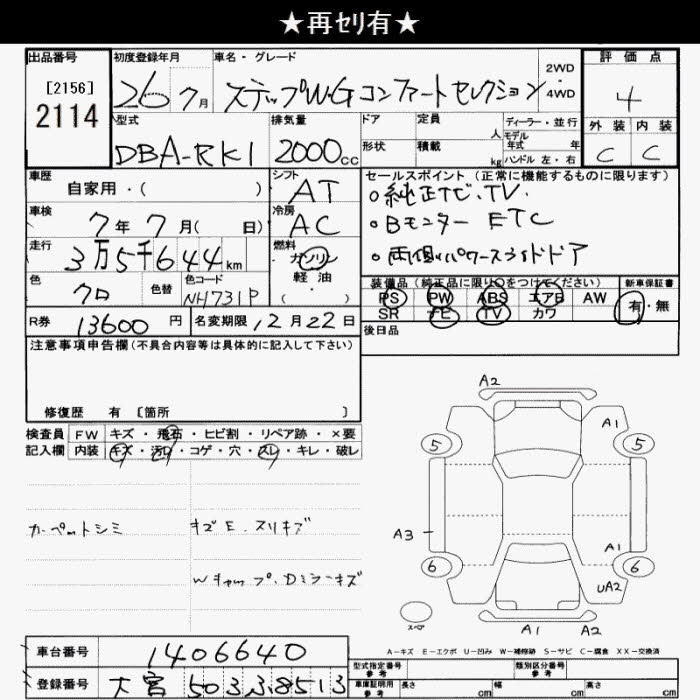 ★再セリ有★
出品番号 初度登録年月 車名・グレード 2WD 評価点
[2156] 26 7月 ステップW・G コンファートセレクション ・ 4
2114 4WD
型式 排気量 ドア 定員 人 ディーラー・並行 外装 内装
DBA-RK1 2000cc 形状 積載 kg モデル年式 年 C C
ハンドル 左・右
車歴 シフト セールスポイント(正常に機能するものに限ります)
自家用・( ) AT
○純正ナビ.TV.
車検 冷房
7年7月( 日) AC ○Bモニター ETC
走行 燃料
3万5千644km ガソリン ○両側パワースライドドア
色 色替 色コード 軽油
クロ NH731P ( )
装備品(純正品に限り○をつけてください) 新車保証書
PS PW ABS エアB AW 有・無
SR TV カワ
R券 13600円 名変期限 12月22日 後日品
注意事項申告欄(不具合内容等は具体的に記入して下さい)
修復歴 有 〔箇所 〕
検査員 FW キズ・飛石・ヒビ割・リペア跡・×要
記入欄 内装 キズ・汚れ・コゲ・穴・スレ・キレ・破レ
A2
A1
5 5
カーペットシミ キズE.スリキズ
A3
A1
6 6
Wキャップ.Dミラーキズ
UA2
スペア
A1 A2
A-キズ E-エクボ U-凹み W-補修跡 S-サビ C-腐食 XX-交換済
車台番号 1406640
型式指定番号 参考 類別区分番号 参考
登録番号 大宮 503 38513
車庫証明用 参考 長さ cm 幅 cm 高さ cm